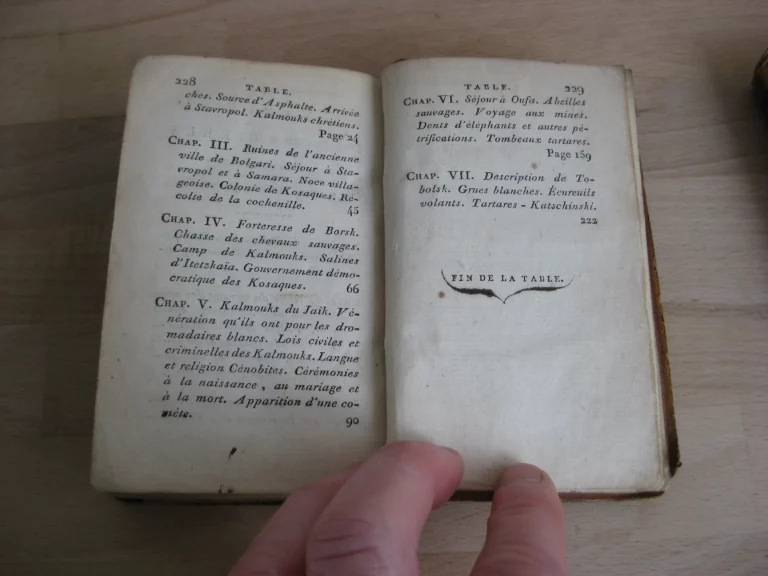 228
TABLE.
ches. Source d'Asphalte. Arrivée
à Stavropol. Kalmouks chrétiens.
Page 24
CHAP. III. Ruines de l'ancienne
ville de Bolgari. Séjour à Sta-
vropol et à Samara. Noce villa-
geoise. Colonie de Kosaques. Ré-
colte de la cochenille. 45
CHAP. IV. Forteresse de Borsk.
Chasse des chevaux sauvages.
Camp de Kalmouks. Salines
d'Itetzkaïa. Gouvernement démo-
cratique des Kosaques. 66
CHAP. V. Kalmouks du Jaïk. Vé-
nération qu'ils ont pour les dro-
madaires blancs. Lois civiles et
criminelles des Kalmouks. Langue
et religion Cénobites. Cérémonies
à la naissance, au mariage et
à la mort. Apparition d'une co-
mète.
90
TABLE.
229
CHAP. VI. Séjour à Oufa. Abeilles
sauvages. Voyage aux mines.
Dents d'éléphants et autres pé-
trifications. Tombeaux tartares.
Page 159
CHAP. VII. Description de To-
bolsk. Grues blanches. Écureuils
volants. Tartares-Katschinski.
222
FIN DE LA TABLE.